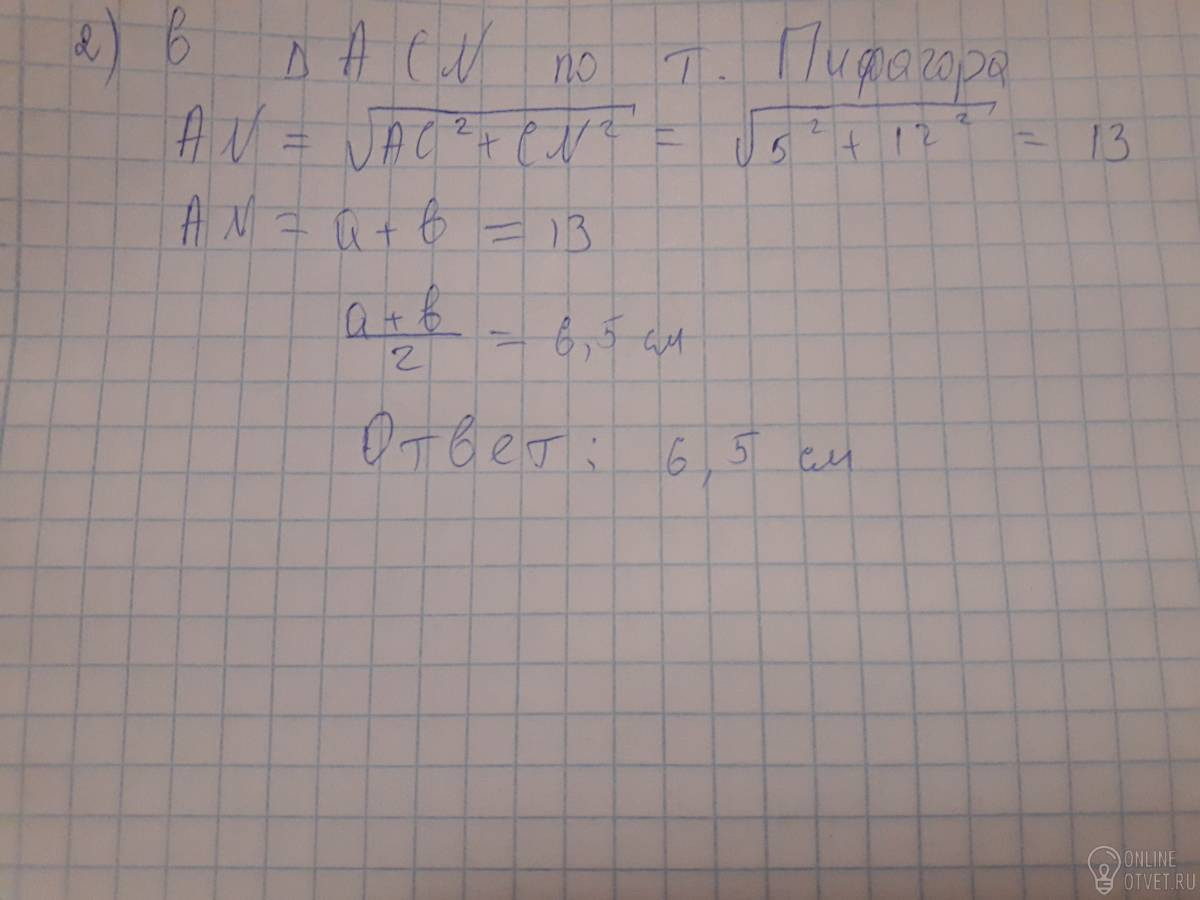 2) в Δ ACN по т. Пифагора
AN = √AC² + CN² = √5² + 12² = 13
AN = a + b = 13
a + b
2
= 6,5 см
Ответ: 6,5 см
ONLINE
OTVET.RU